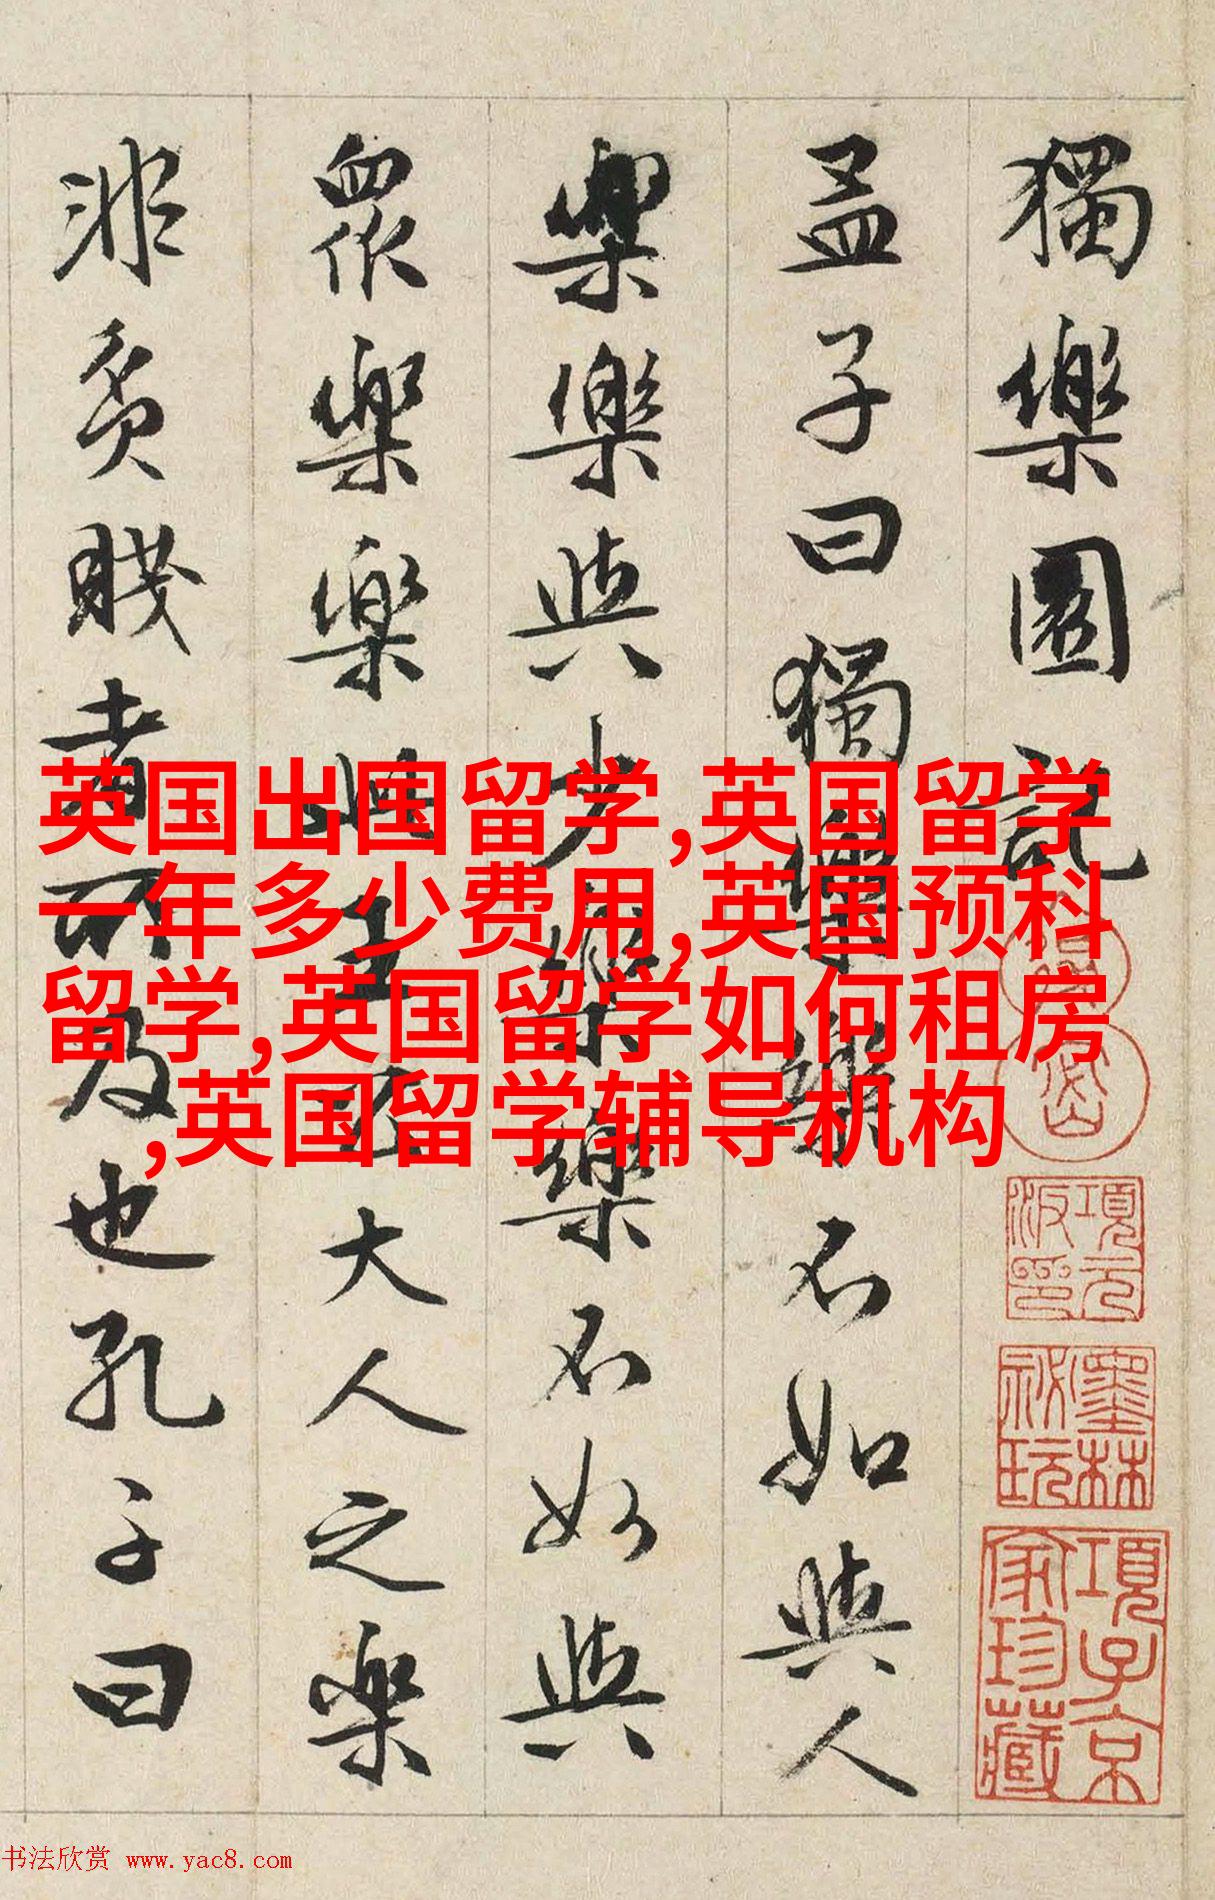 獨樂園記
孟子曰獨樂樂不如與人
樂樂與少樂樂不如與
衆樂樂此王公大人之樂
非貧賤者所及也孔子曰
英国出国留学,英国留学
一年多少费用,英国预科
留学,英国留学如何租房
,英国留学辅导机构
項元汴印
墨林祕玩
項子京家珍藏
书法欣赏 www.yac8.com